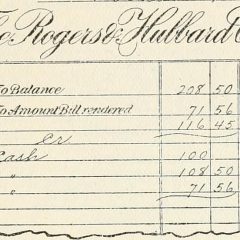 Rogers & Hubbard
To Balance 208 50
To Amount Bill rendered 71 56
116 45
Cr
Cash 100
" 108 50
" 71 56